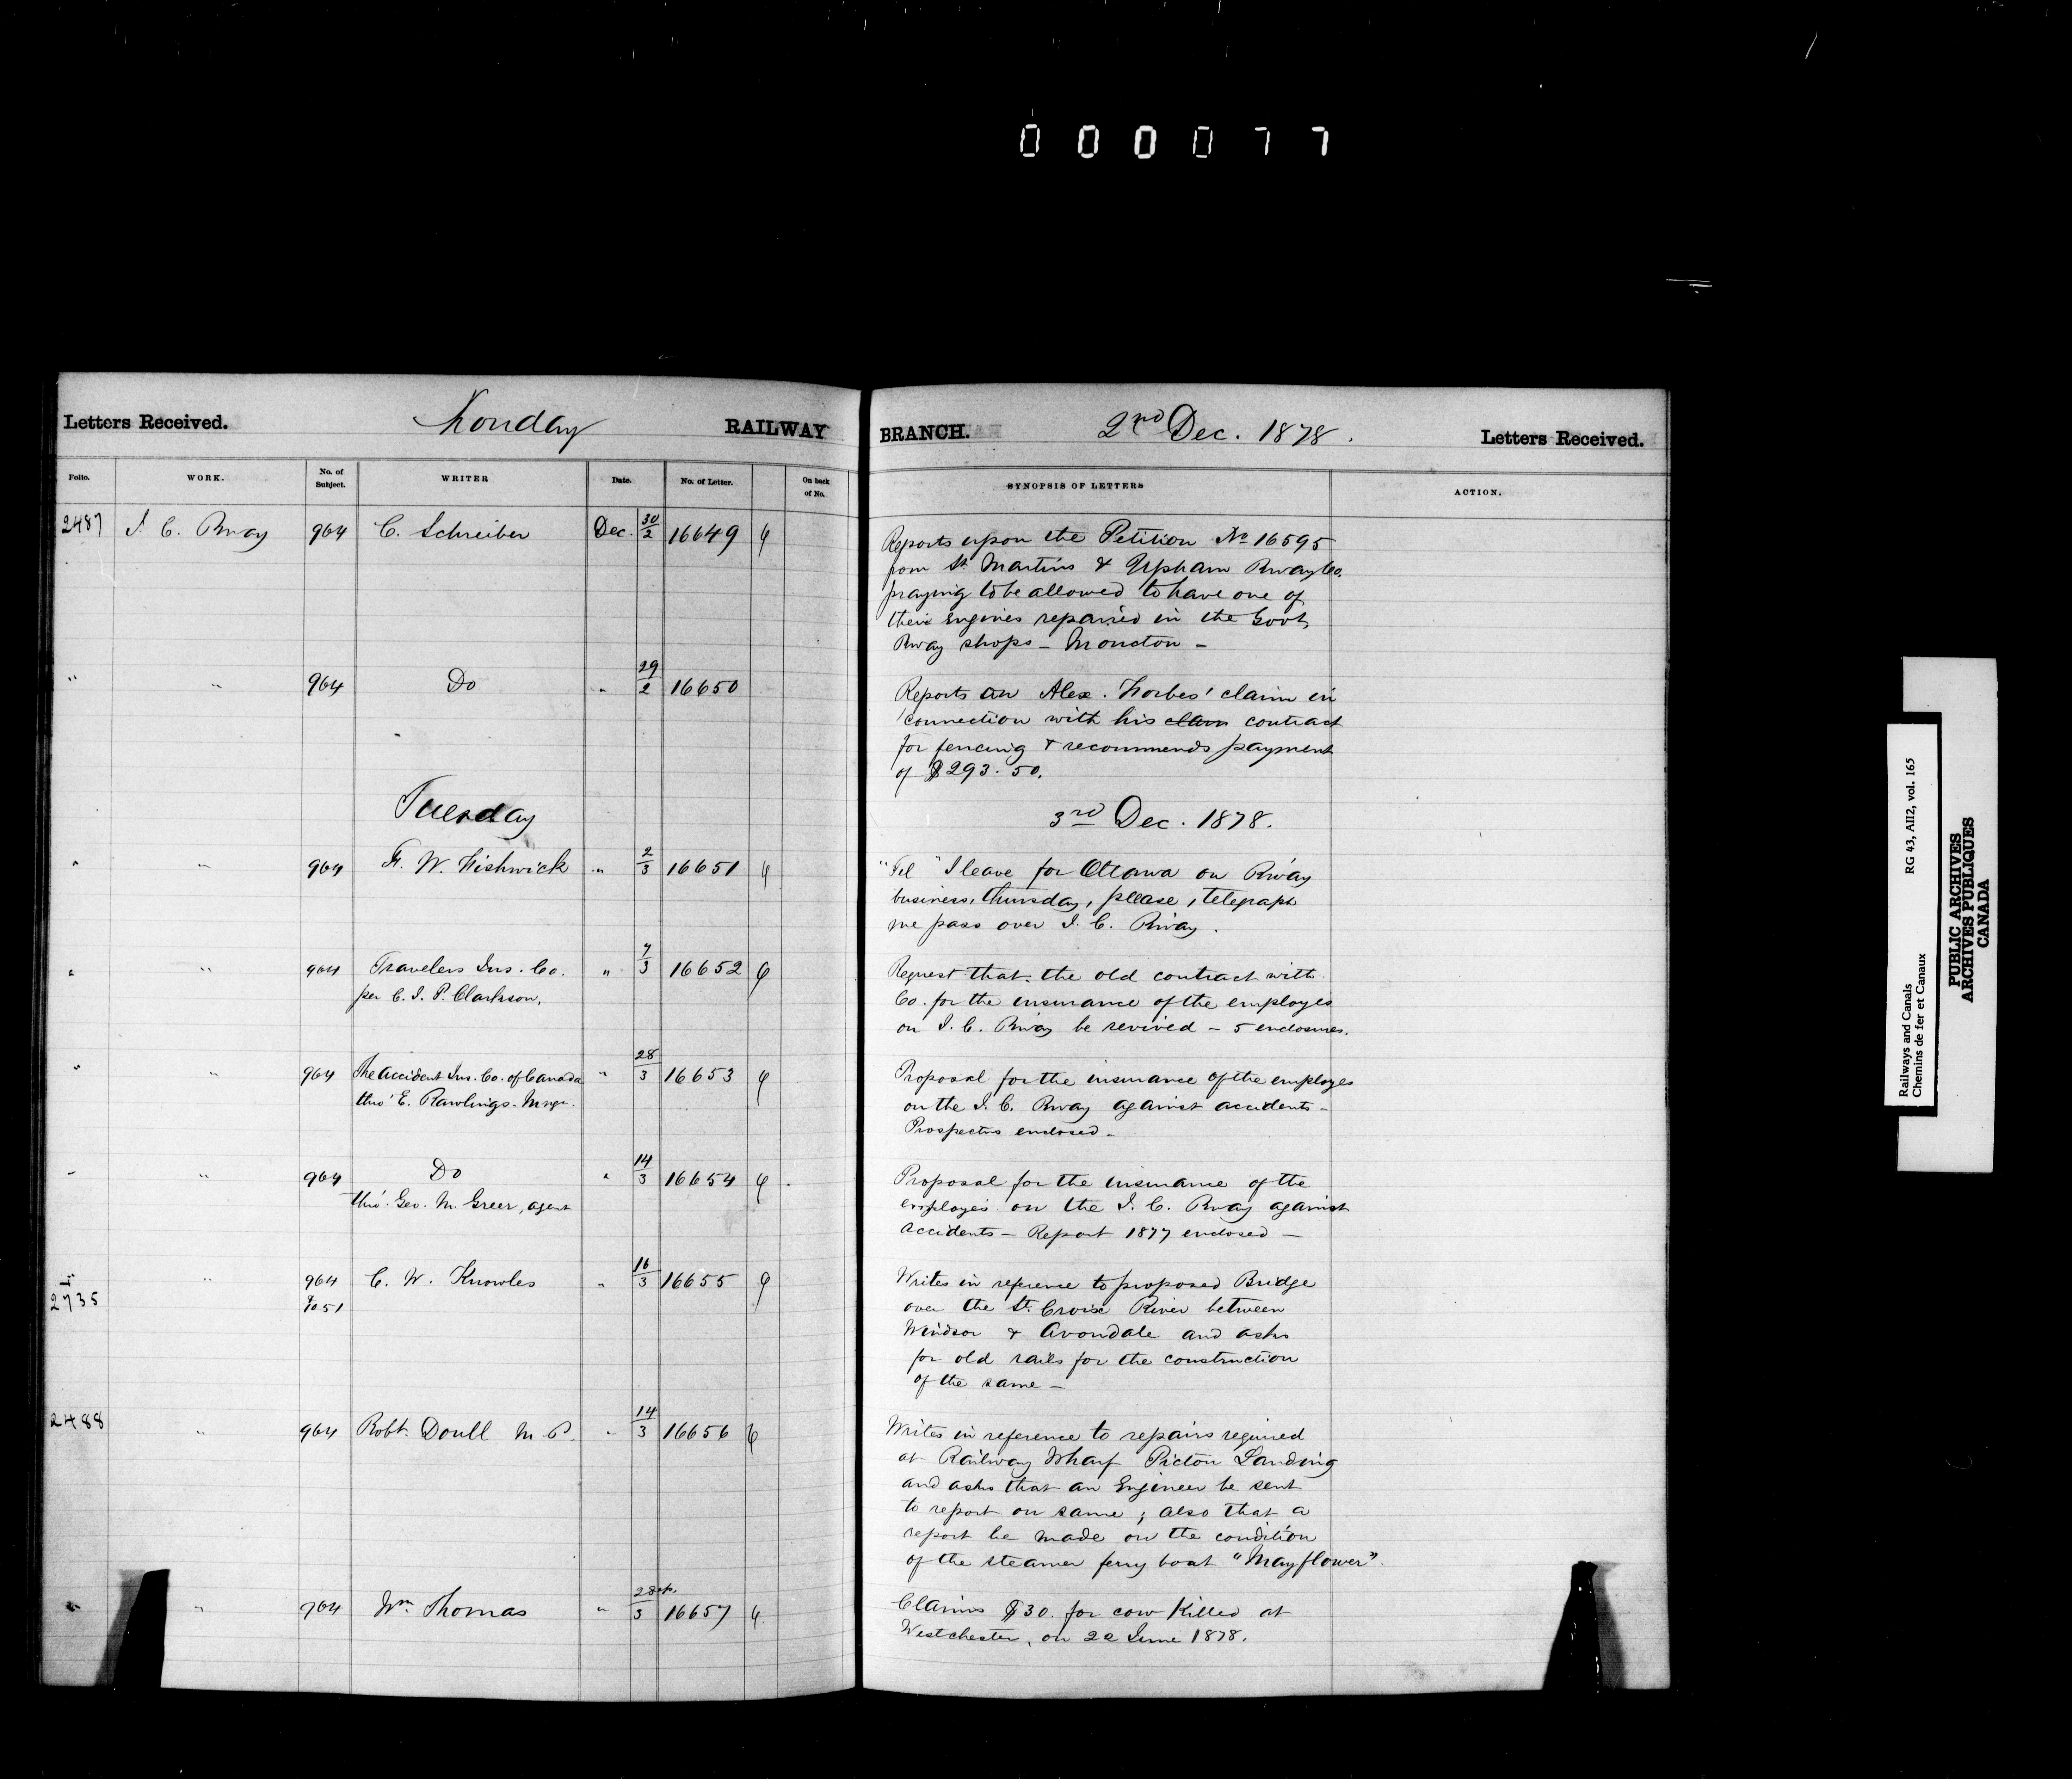 000077
Letters Received. Monday RAILWAY BRANCH. 2nd Dec. 1878. Letters Received.
Folio. WORK. No. of Subject. WRITER Date. No. of Letter. On back of No. SYNOPSIS OF LETTERS ACTION.
2487 I. C. Rway 964 C. Schreiber Dec. 30/2 16649
Reports upon the Petition No 16595
from St Martins & Upham Rway Co.
praying to be allowed to have one of
their Engines repaired in the Govt
Rway shops - Moncton -
" " 964 Do " 29/2 16650
Reports on Alex. Forbes' claim in
connection with his claim contract
for fencing & recommends payment
of $293.50.
Tuesday 3rd Dec. 1878.
" " 964 F. W. Fishwick " 2/3 16651
"Tel" I leave for Ottawa on Rway
business, thursday, please, telegraph
me pass over I. C. Rway.
" " 964 Travelers Ins. Co. " 7/3 16652
per C. I. P. Clarkson.
Request that the old contract with
Co. for the insurance of the employes
on I. C. Rway be revived - 5 enclosures.
" " 964 The Accident Ins. Co. of Canada " 28/3 16653
thro' E. Rawlings. Mngr.
Proposal for the insurance of the employes
on the I. C. Rway against accidents -
Prospectus enclosed -
" " 964 Do " 14/3 16654
thro'. Geo. M. Greer, agent
Proposal for the insurance of the
employés on the I. C. Rway against
accidents - Report 1877 enclosed -
" " 964 C. W. Knowles " 16/3 16655
2735
Writes in reference to proposed Bridge
over the St. Croix River between
Windsor & Avondale and asks
for old rails for the construction
of the same -
2488 " 964 Robt. Doull M.P. " 14/3 16656
Writes in reference to repairs required
at Railway Wharf Pictou Landing
and asks that an Engineer be sent
to report on same; also that a
report be made on the condition
of the steamer ferry boat "Mayflower"
" " 964 Wm Thomas " 28/3 16657
Claims $30. for cow killed at
Westchester, on 22 June 1878.
Railways and Canals
Chemins de fer et Canaux
RG 43, AII2, vol. 165
PUBLIC ARCHIVES
ARCHIVES PUBLIQUES
CANADA